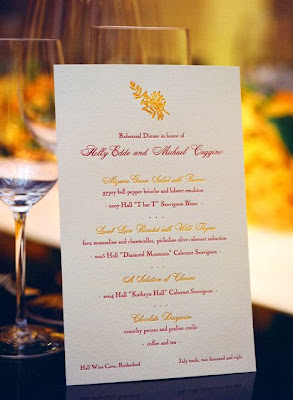 Rehearsal Dinner in honor of
Holly Edde and Michael Coggino
Mizuna Green Salad with
gypsy bell pepper brioche and lobster emulsion
- 2007 Hall "T bar T" Sauvignon Blanc -
Lamb Loin Roasted with Wild Thyme
fava mousseline and chanterelles, picholine olive cabernet reduction
- 2005 Hall "Diamond Mountain" Cabernet Sauvignon -
A Selection of Cheeses
- 2004 Hall "Kathryn Hall" Cabernet Sauvignon -
Chocolate Dacquoise
crunchy peanut and praline coulis
- coffee and tea -
Hall Wine Cave, Rutherford
July tenth, two thousand and eight